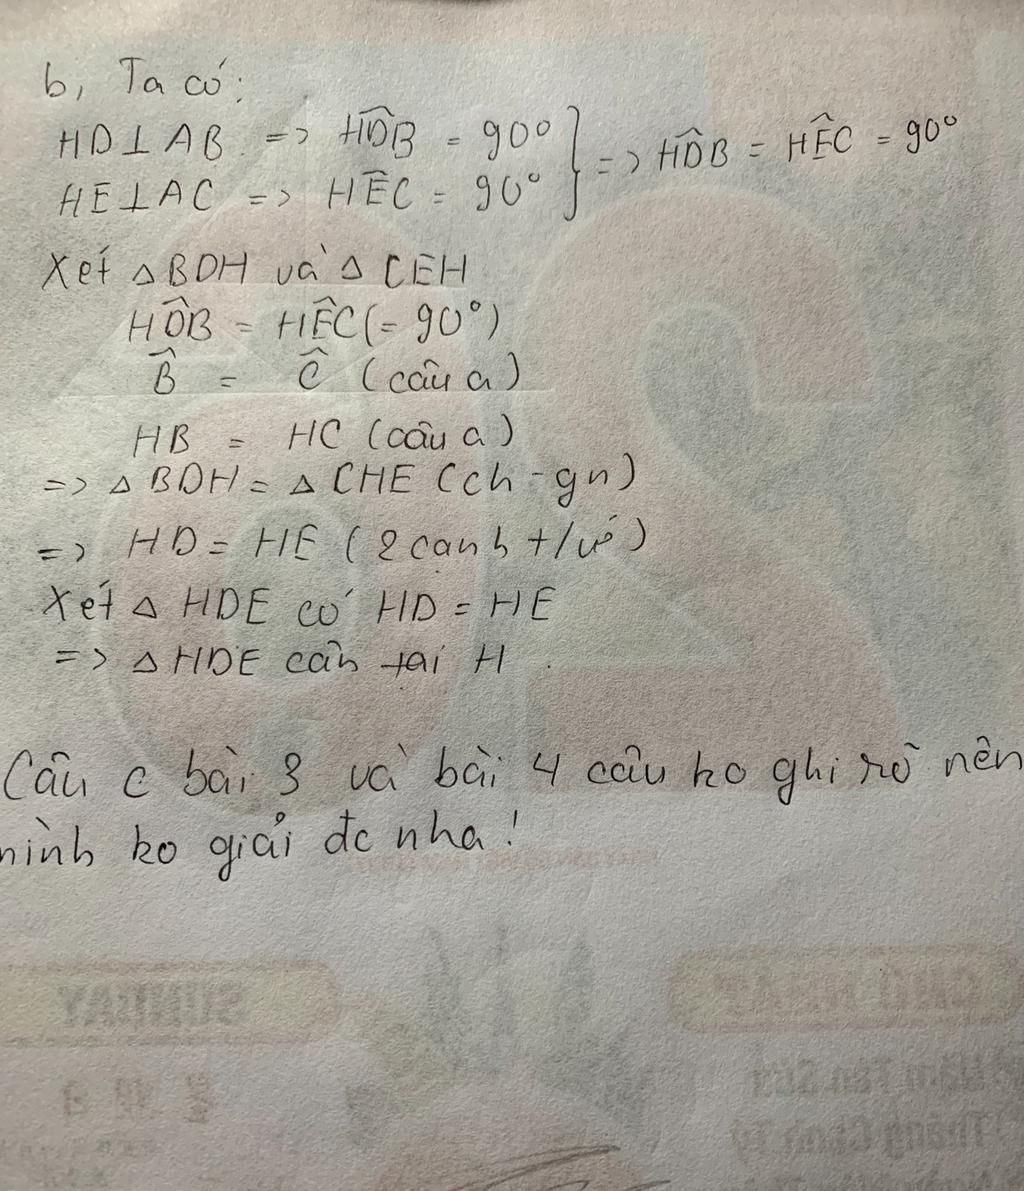 b, Ta có:
HD⊥AB => HD̂B = 90° } => HD̂B = HÊC = 90°
HE⊥AC => HÊC = 90°
Xét △BDH và △ CEH
HD̂B = HÊC (= 90°)
B̂ = Ĉ (câu a)
HB = HC (câu a)
=> △ BDH = △ CHE (ch-gn)
=> HD = HE (2 cạnh t/ứ)
Xét △ HDE có HD = HE
=> △ HDE cân tại H.
Câu c bài 3 và bài 4 câu ko ghi rõ nên
mình ko giải đc nha!
SUNDAY
CHỦ NHẬT